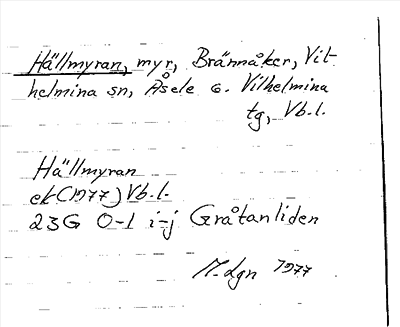 Hällmyran, myr, Brännåker, Vil-
helmina sn, Åsele o. Vilhelmina
tg, Vb.l.
Hällmyran
ek (1977) Vb.l.
23G 0-1 i-j Gråtanliden
M. Lgn 1977